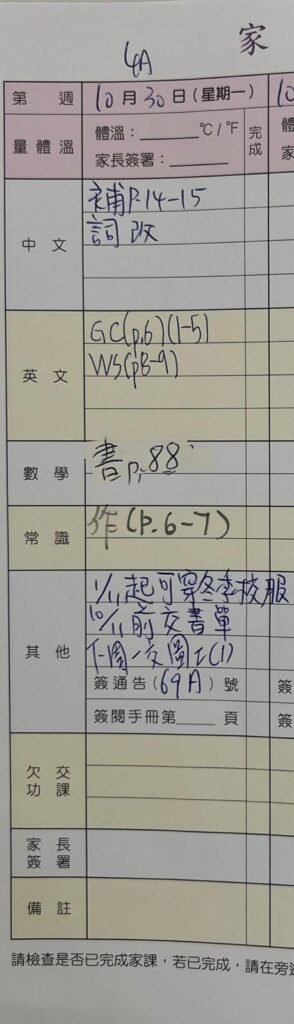 4A
家
第 週 10月30日(星期一)
量體溫 體溫：______°C/°F
家長簽署：______
完成
中文 補P.14-15
詞改
英文 GC(p.6)(1-5)
WS(p8-9)
數學 書p.88
常識 作(P.6-7)
其他 1/11起可穿冬季校服
10/11前交書單
下周一交圖工(1)
簽通告(69A)號
簽閱手冊第____頁
欠交功課
家長簽署
備註
請檢查是否已完成家課，若已完成，請在旁